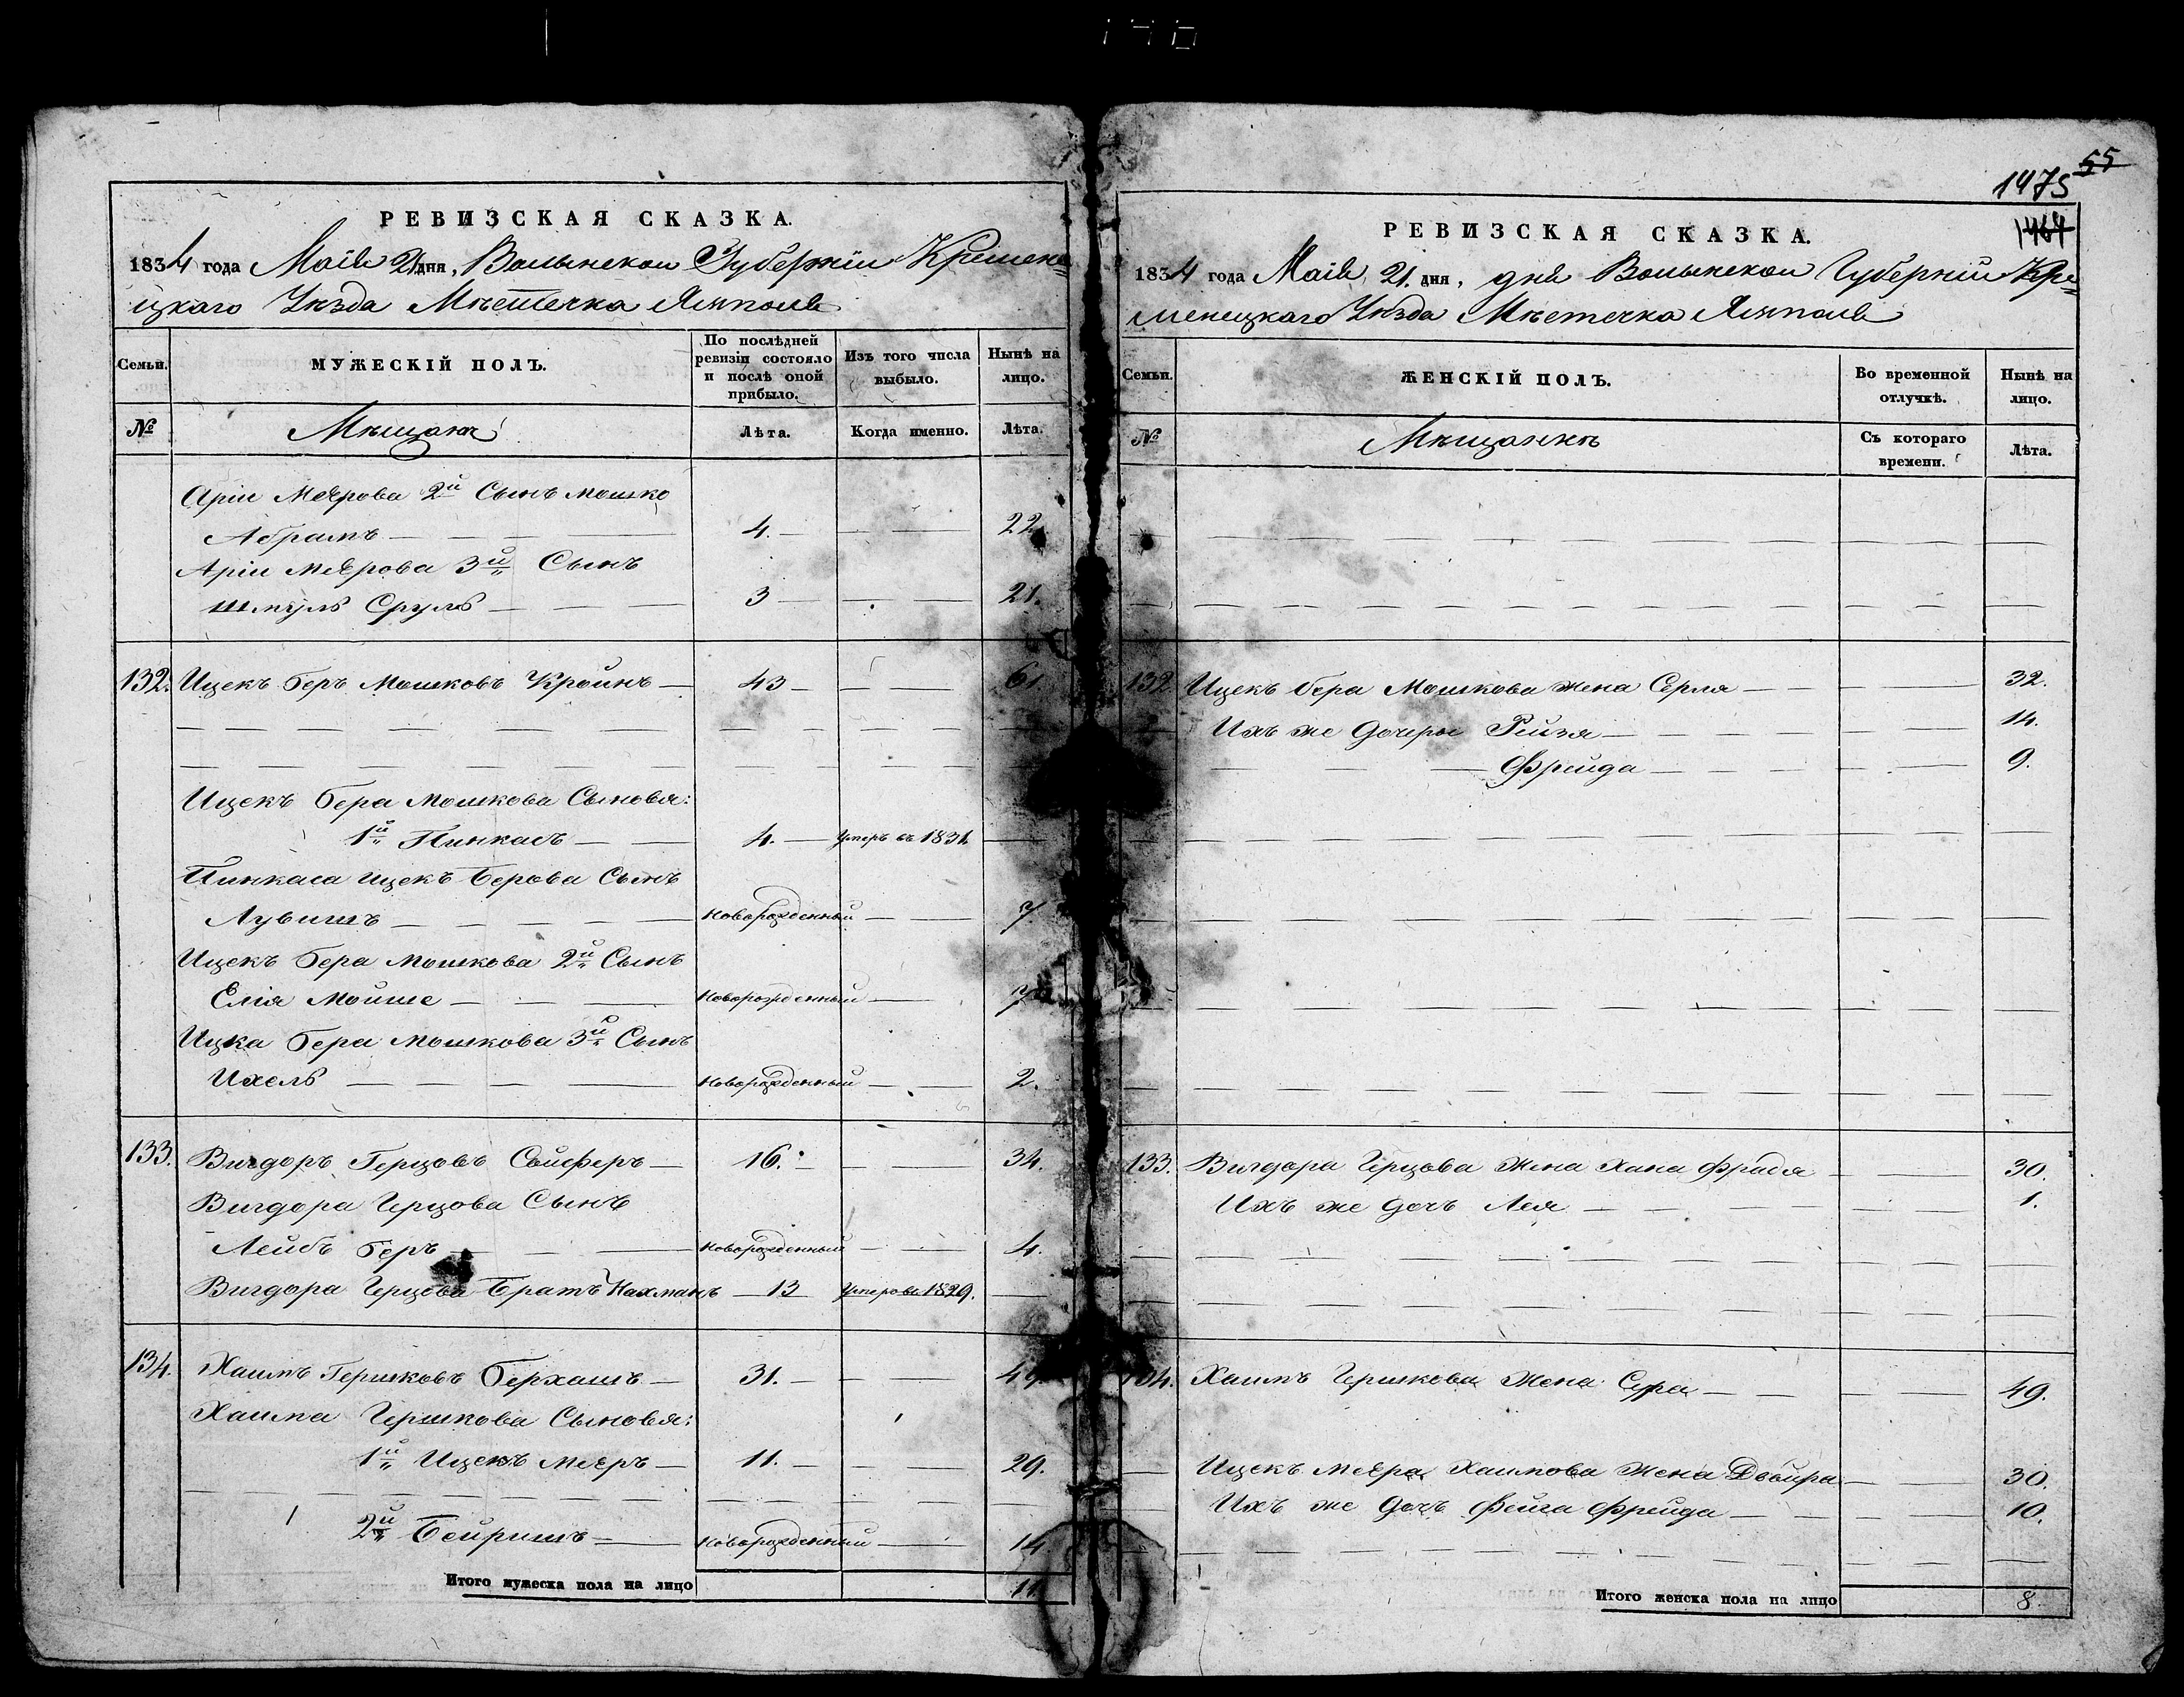 РЕВИЗСКАЯ СКАЗКА.
1834 года Маія 21 дня, Волынской Губерніи Кремене=
цкаго Уѣзда Мѣстечка Ямполя
Семьи.
МУЖЕСКІЙ ПОЛЪ.
По послѣдней ревизіи состояло и послѣ оной прибыло.
Изъ того числа выбыло.
Нынѣ на лицо.
№
Мѣщане
Лѣта.
Когда именно.
Лѣта.
Аріи Меерова 2й Сынъ Мошко
Абрамъ 4. 22
Аріи Меерова 3й Сынъ
Шмуль Сруль 3 21.
132. Ицекъ Беръ Мошковъ Кройнъ 43 61
Ицекъ Бера Мошкова Сыновя:
1й Пинкасъ 4. Умеръ въ 1831
Пинкаса Ицекъ Берова Сынъ
Лувишъ Новорожденный 7
Ицекъ Бера Мошкова 2й Сынъ
Елія Мойше Новорожденный 7
Ицка Бера Мошкова 3й Сынъ
Ихель Новорожденный 2.
133. Вигдоръ Герцовъ Сойферъ 16. 34.
Вигдора Герцова Сынъ
Лейбъ Беръ Новорожденный 4.
Вигдора Герцова Братъ Нахманъ 13 Умеръ въ 1829.
134. Хаимъ Гершковъ Берхашъ 31. 49
Хаима Гершкова Сыновя:
1й Ицекъ Мееръ 11. 29.
2й Бейришъ Новорожденный 14
Итого мужеска пола на лицо 11.
1475 55
1464
РЕВИЗСКАЯ СКАЗКА.
1834 года Маія 21. дня, дня Волынской Губерніи Кре=
менецкаго Уѣзда Мѣстечка Ямполя
Семьи.
ЖЕНСКІЙ ПОЛЪ.
Во временной отлучкѣ.
Нынѣ на лицо.
№
Мѣщанкѣ
Съ котораго времени.
Лѣта.
132 Ицекъ Бера Мошкова жена Серля 32.
Ихъ же дочеры Рейзя 14.
Фрейда 9.
133. Вигдора Герцова Жена Хана Фрадя 30.
Ихъ же дочъ Лея 1.
134. Хаимъ Гершкова Жена Сура 49.
Ицекъ Меера Хаимова Жена Двойра 30.
Ихъ же дочъ Фейга Фрейда 10.
Итого женска пола на лицо 8.